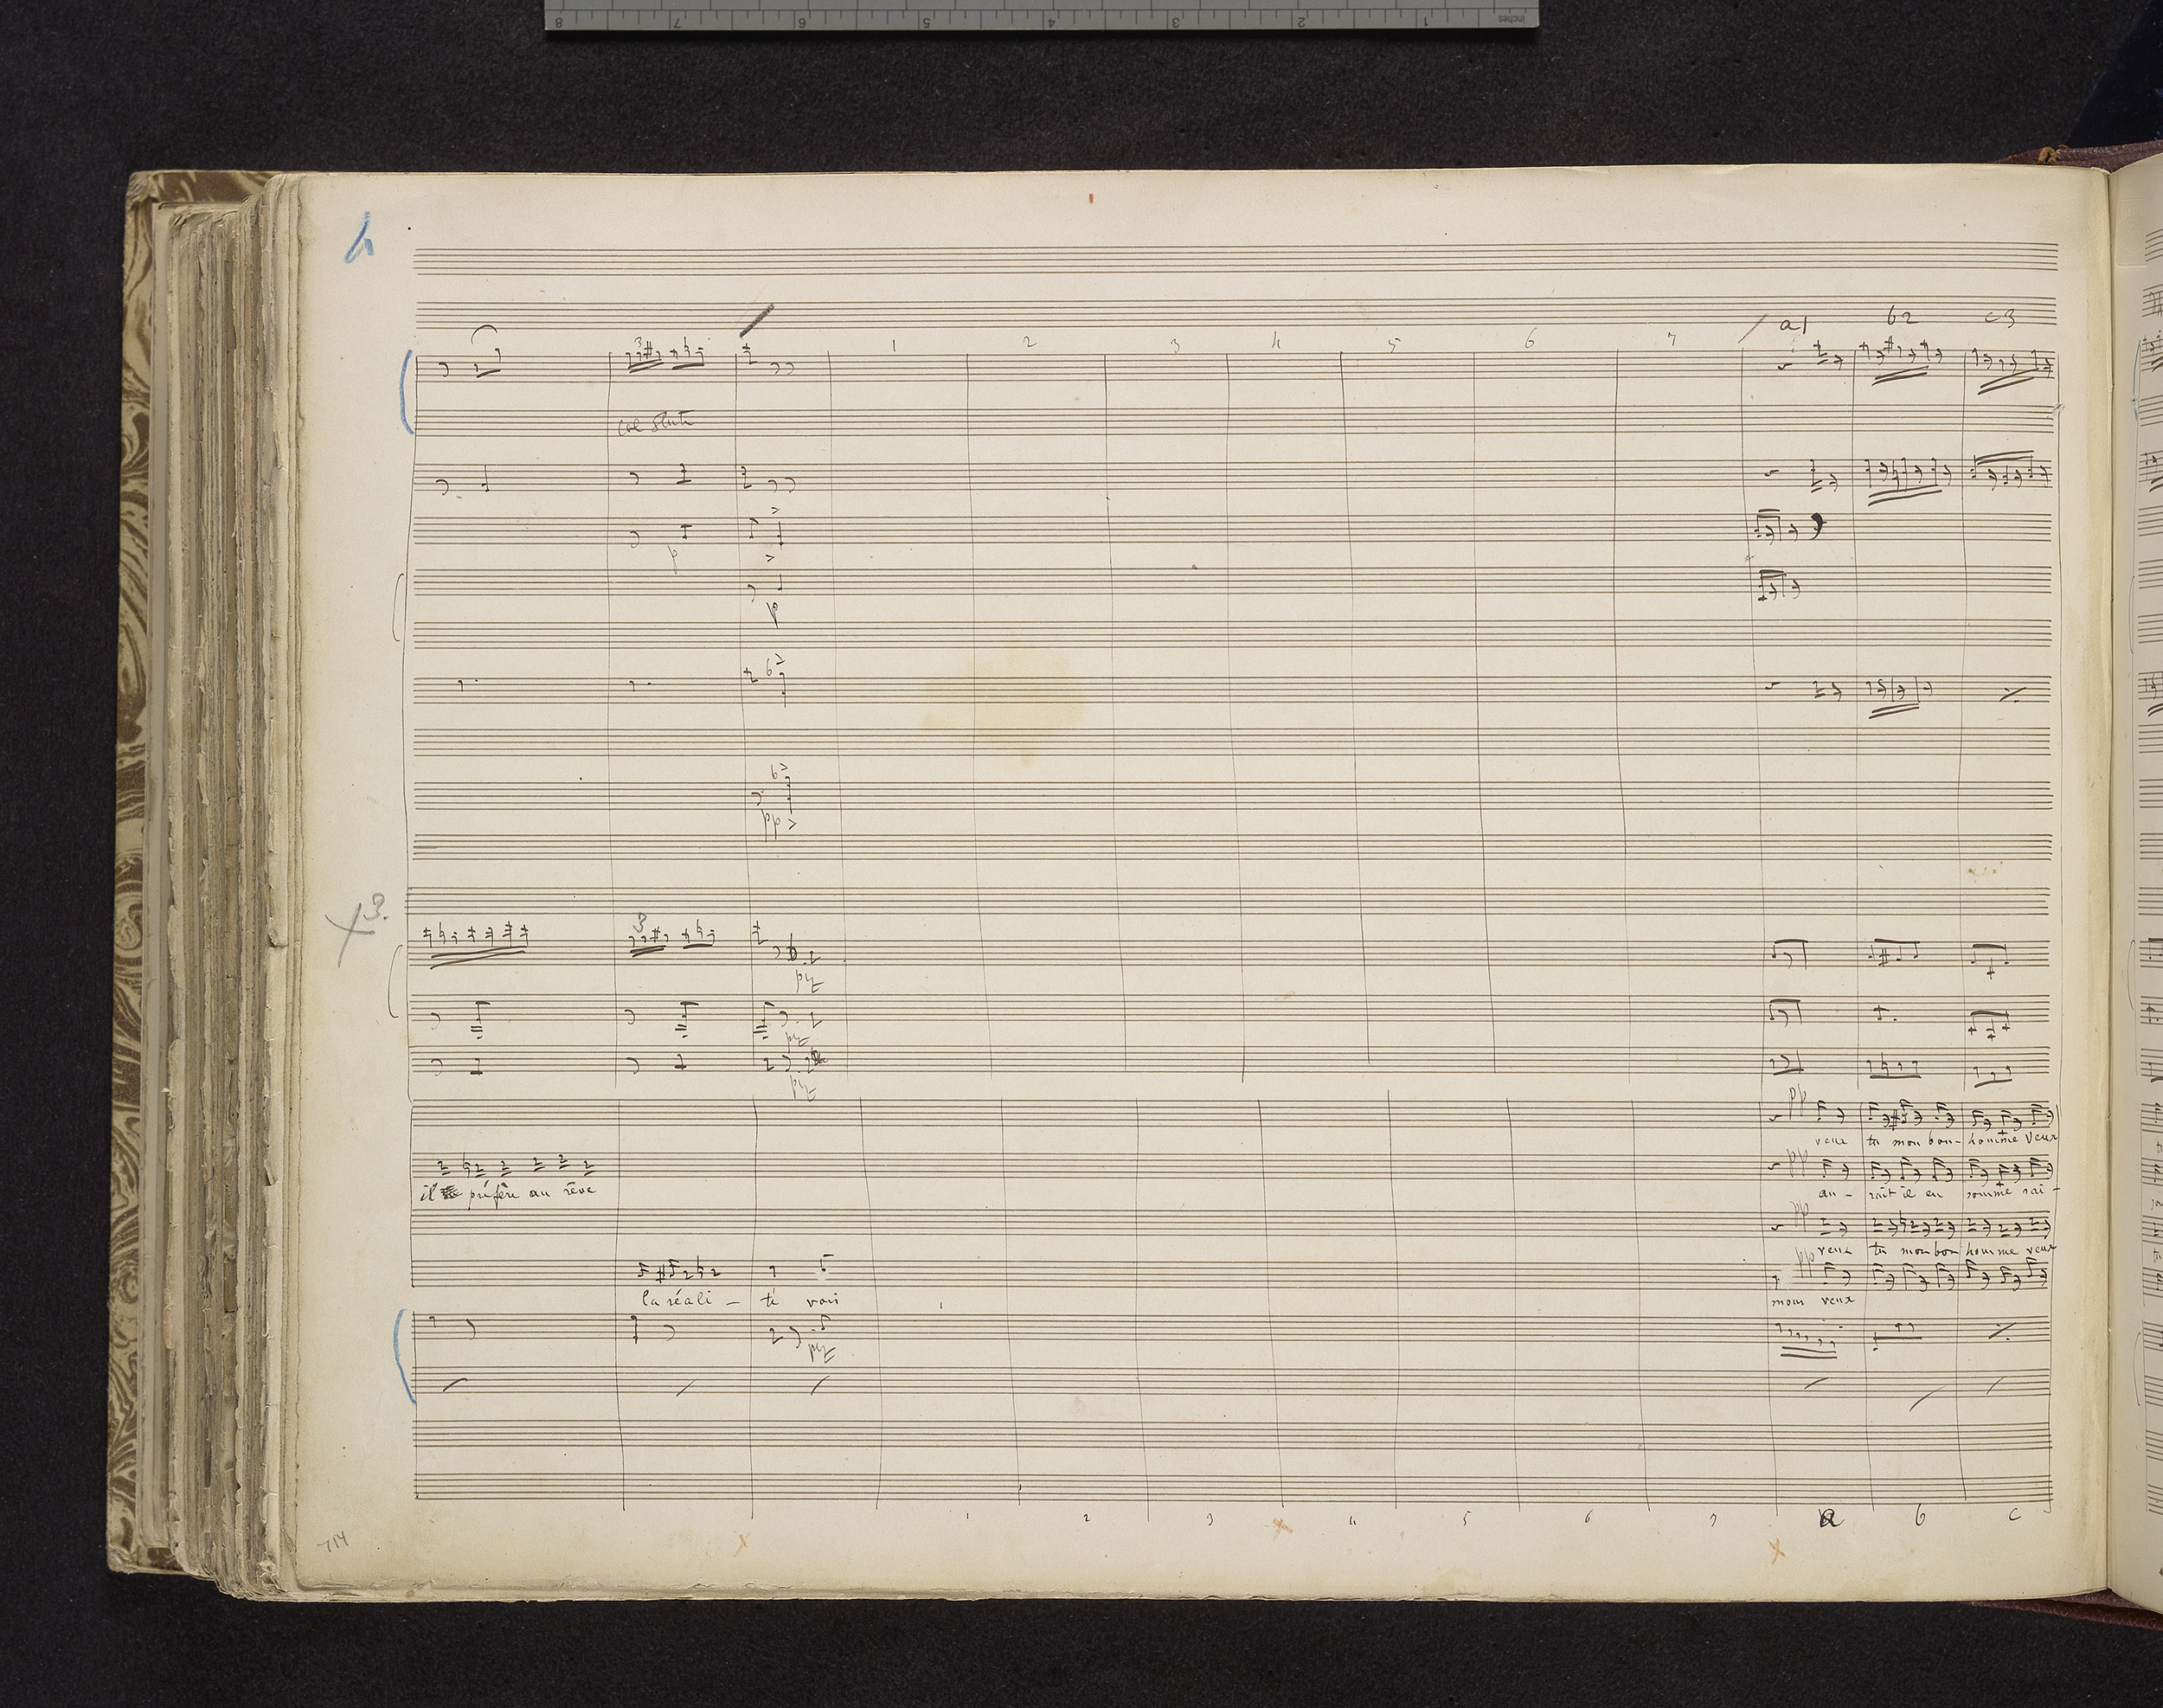 8 7 6 5 4 3 2 1 inches
4
a1 b2 c3
3 1 2 3 4 5 6 7
col Flute
p
p
pp
X3.
3
piz
piz
piz
pp
veux tu mon bon- homme veux
pp
il préfère au rêve au- rait il en somme rai-
pp
veux tu mon bon homme veux
pp
la réali - té vois mon veux
piz
1 2 3 4 5 6 7 a b c
x x x
714